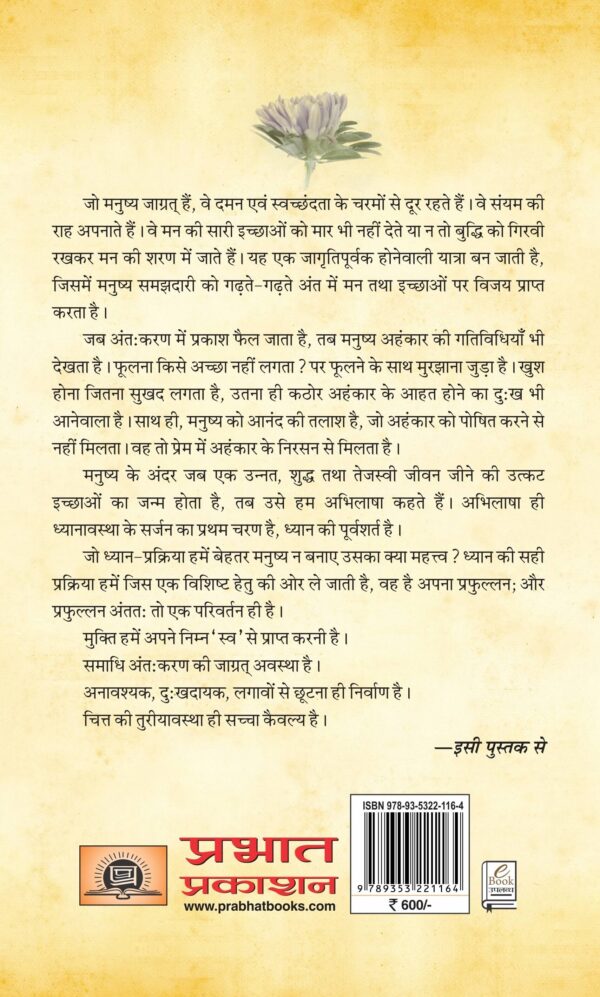 जो मनुष्य जाग्रत् हैं, वे दमन एवं स्वच्छंदता के चरमों से दूर रहते हैं। वे संयम की
राह अपनाते हैं। वे मन की सारी इच्छाओं को मार भी नहीं देते या न तो बुद्धि को गिरवी
रखकर मन की शरण में जाते हैं। यह एक जागृतिपूर्वक होनेवाली यात्रा बन जाती है,
जिसमें मनुष्य समझदारी को गढ़ते-गढ़ते अंत में मन तथा इच्छाओं पर विजय प्राप्त
करता है।
जब अंत:करण में प्रकाश फैल जाता है, तब मनुष्य अहंकार की गतिविधियाँ भी
देखता है। फूलना किसे अच्छा नहीं लगता? पर फूलने के साथ मुरझाना जुड़ा है। खुश
होना जितना सुखद लगता है, उतना ही कठोर अहंकार के आहत होने का दु:ख भी
आनेवाला है। साथ ही, मनुष्य को आनंद की तलाश है, जो अहंकार को पोषित करने से
नहीं मिलता। वह तो प्रेम में अहंकार के निरसन से मिलता है।
मनुष्य के अंदर जब एक उन्नत, शुद्ध तथा तेजस्वी जीवन जीने की उत्कट
इच्छाओं का जन्म होता है, तब उसे हम अभिलाषा कहते हैं। अभिलाषा ही
ध्यानावस्था के सर्जन का प्रथम चरण है, ध्यान की पूर्वशर्त है।
जो ध्यान-प्रक्रिया हमें बेहतर मनुष्य न बनाए उसका क्या महत्त्व? ध्यान की सही
प्रक्रिया हमें जिस एक विशिष्ट हेतु की ओर ले जाती है, वह है अपना प्रफुल्लन; और
प्रफुल्लन अंतत: तो एक परिवर्तन ही है।
मुक्ति हमें अपने निम्न ‘स्व’ से प्राप्त करनी है।
समाधि अंत:करण की जाग्रत अवस्था है।
अनावश्यक, दु:खदायक, लगावों से छूटना ही निर्वाण है।
चित्त की तुरीयावस्था ही सच्चा कैवल्य है।
—इसी पुस्तक से
प्रभात
प्रकाशन
www.prabhatbooks.com
ISBN 978-93-5322-116-4
9 789353 221164
₹ 600/-
e
Book
उपलब्ध